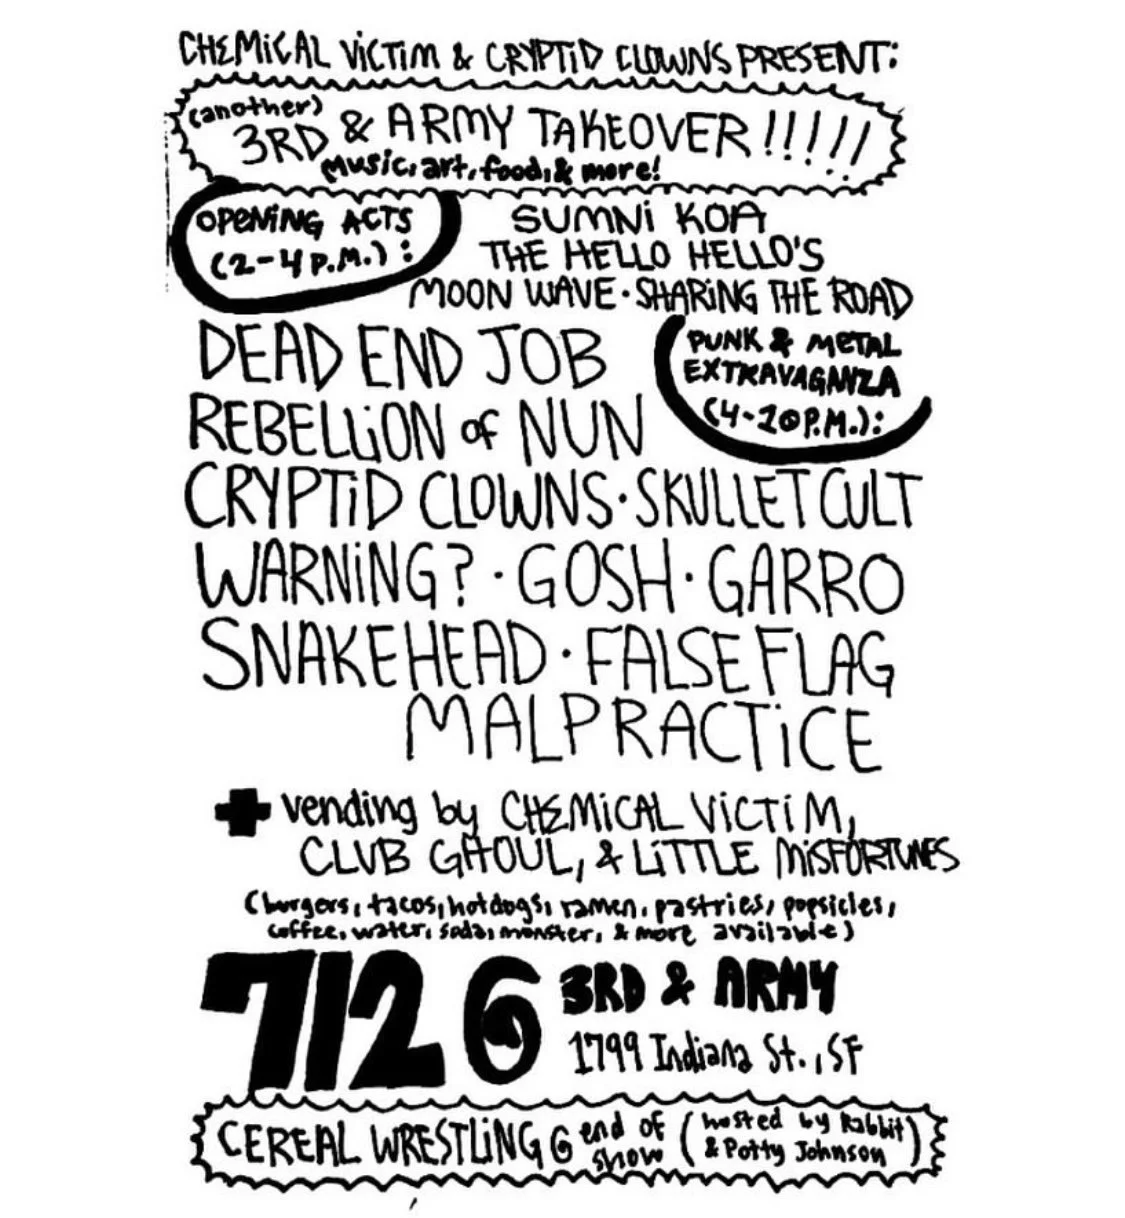 CHEMiCAL ViCTiM & CRYPTiD CLOWNS PRESENT:
(another)
3RD & ARMY TAKEOVER!!!!!
Music, art, food, & more!
OPENiNG ACTS
(2-4 P.M.):
SUMNi KOA
THE HELLO HELLO'S
MOON WAVE · SHARiNG THE ROAD
DEAD END JOB
PUNK & METAL
EXTRAVAGANZA
(4-10 P.M.):
REBELLiON of NUN
CRYPTiD CLOWNS · SKULLET CULT
WARNiNG? · GOSH · GARRO
SNAKEHEAD · FALSE FLAG
MALPRACTiCE
+ vending by CHEMiCAL ViCTiM,
CLUB GHOUL, & LiTTLE MiSFORTUNES
(burgers, tacos, hotdogs, ramen, pastries, popsicles,
coffee, water, soda, monster, & more available)
712 6
3RD & ARMY
1799 Indiana St., SF
CEREAL WRESTLiNG @ end of show (hosted by Rabbit & Potty Johnson)